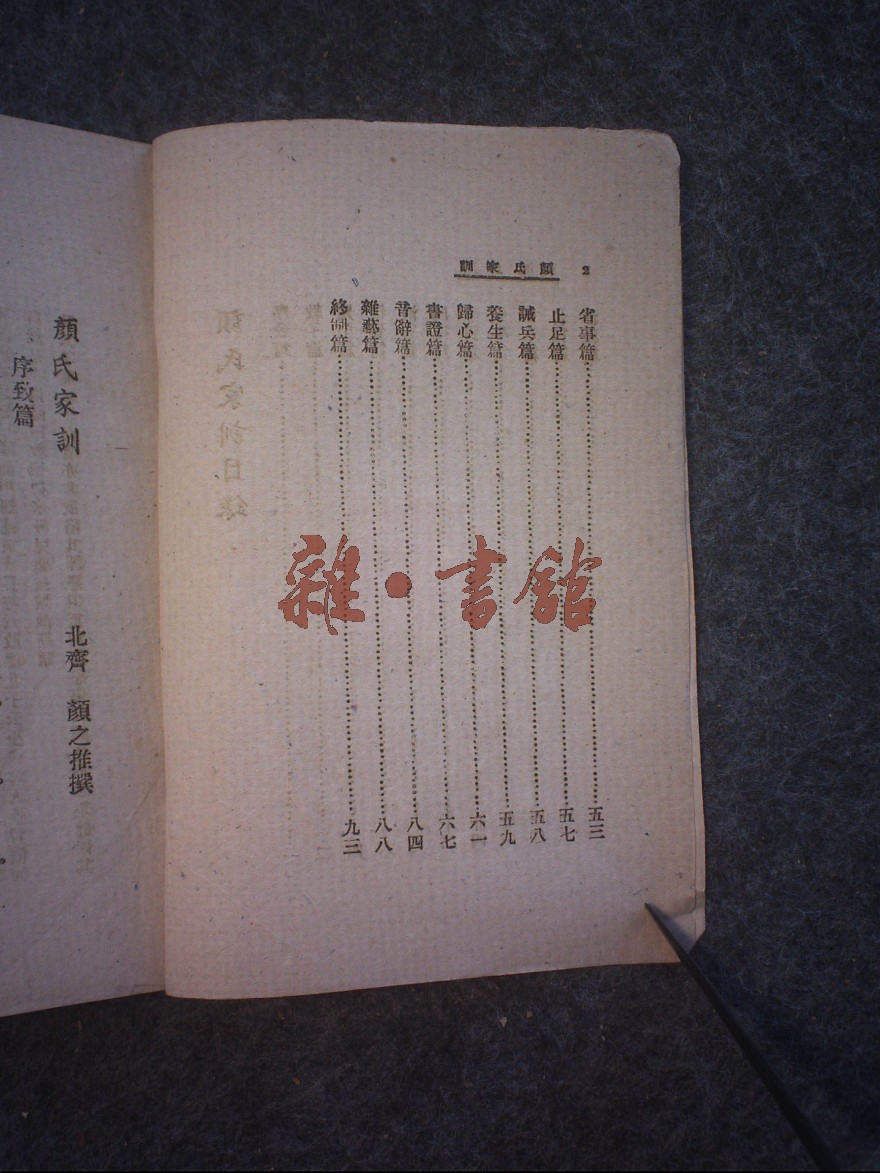 2 顏氏家訓
省事篇……五三
止足篇……五七
誡兵篇……五八
養生篇……五九
歸心篇……六一
書證篇……六七
音辭篇……八四
雜藝篇……八八
終制篇……九三
顏氏家訓
北齊 顏之推撰
序致篇
雜·書館